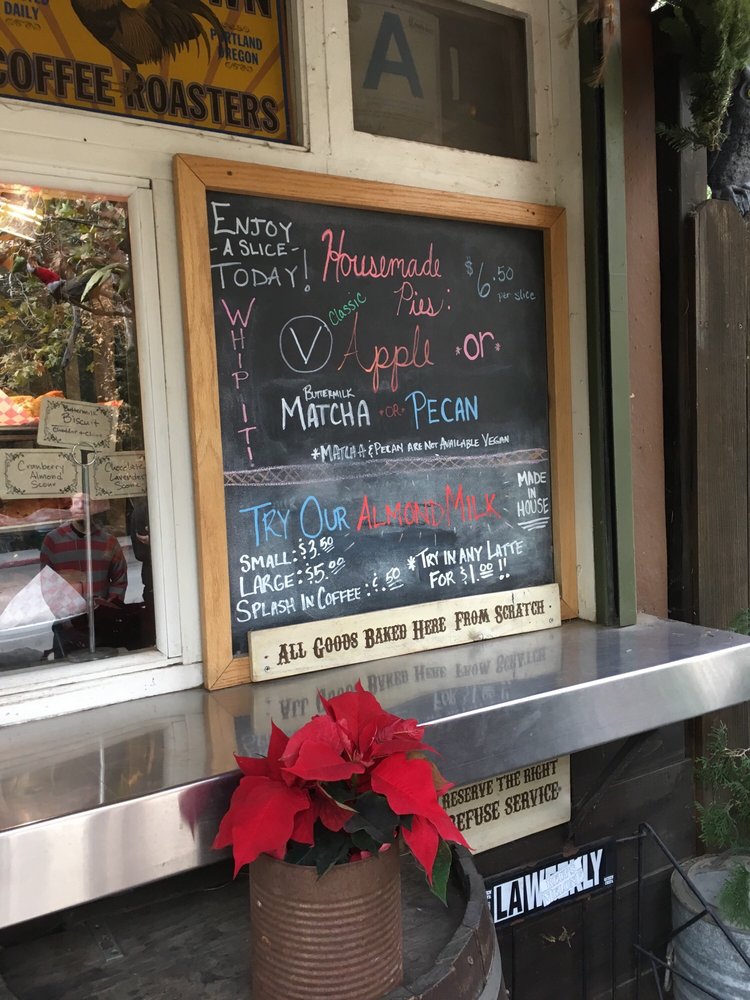 DAILY
WN
PORTLAND
OREGON
COFFEE ROASTERS
A
ENJOY
-A SLICE-
TODAY!
WHIP IT!
Housemade
Pies:
$6.50
per slice
Classic
V Apple *or*
BUTTERMILK
MATCHA *OR* PECAN
*MATCHA & PECAN ARE NOT AVAILABLE VEGAN
TRY OUR ALMOND MILK
MADE
IN
HOUSE
SMALL: $3.50
LARGE: $5.00
SPLASH IN COFFEE: ¢.50
*TRY IN ANY LATTE
FOR $1.00!!
ALL GOODS BAKED HERE FROM SCRATCH
Buttermilk
Biscuit
Cranberry
Almond
Scone
Chocolate
Lavender
Scone
RESERVE THE RIGHT
REFUSE SERVICE
LA WEEKLY